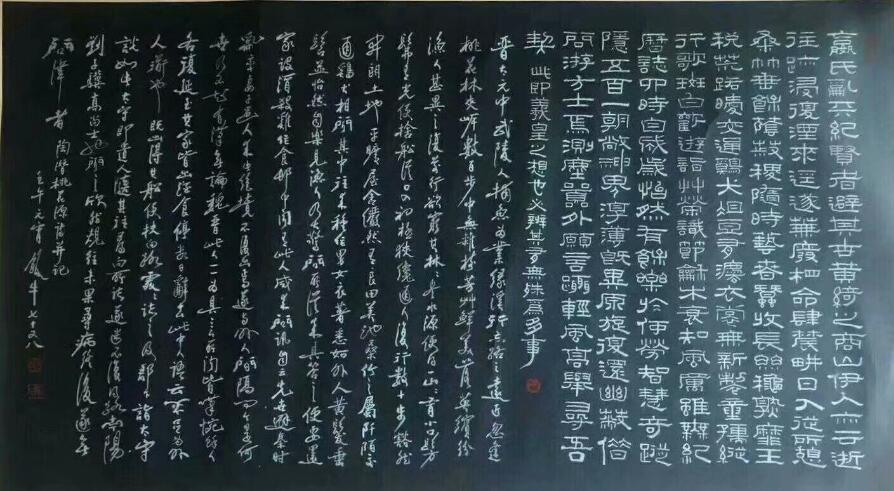 嬴氏亂天紀賢者避其世黃綺之商山伊人亦云逝
往迹浸復湮來逕遂蕪廢相命肆農耕日入從所憩
桑竹垂餘蔭菽稷隨時藝春蠶收長絲秋熟靡王
稅荒路曖交通鷄犬俎豆猶法衣裳無新製童孺縱
行歌斑白歡遊詣艸榮識節和木衰知風厲雖無紀
曆誌四時自成歲怡然有餘樂於何勞智慧奇蹤
隱五百一朝敞神界淳薄既異原旋復還幽蔽借
問游方士焉測塵囂外願言躡輕風高舉尋吾
契 此即羲皇之想也必辨其有無殊爲多事
晉太元中武陵人捕魚為業緣溪行忘路之遠近忽逢
桃花林夾岸數百步中無雜樹芳艸鮮美落英繽紛
漁人甚異之復前行欲窮其林林盡水源便得一山山有小口髣
髴若有光便捨船從口入初極狹纔通人復行數十步豁然
開朗土地平曠屋舍儼然有良田美池桑竹之屬阡陌交
通鷄犬相聞其中往來種作男女衣著悉如外人黃髮垂
髫並怡然自樂見漁人乃大驚問所從來具答之便要還
家設酒殺雞作食邨中聞有此人咸來問訊自云先世避秦時
亂率妻子邑人來此絕境不復出焉遂與外人間隔問今是何
世乃不知有漢無論魏晉此人一一為具言所聞皆歎惋餘人
各復延至其家皆出酒食停數日辭去此中人語云不足為外
人道也 既出得其船便扶向路處處誌之及郡下詣太守
說如此太守即遣人隨其往尋向所誌遂迷不復得路南陽
劉子驥高尚士也聞之欣然規往未果尋病終後遂無
問津者 陶潛桃花源詩并記
壬午元宵 年七十又八